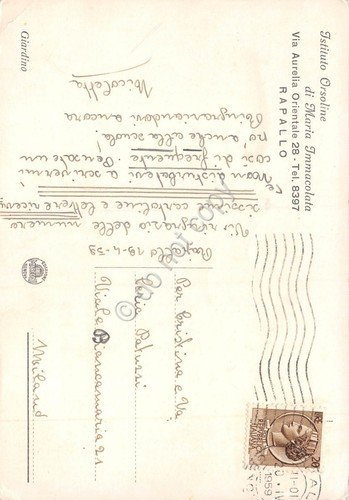 Istituto Orsoline
di Maria Immacolata
Via Aurelia Orientale 28 - Tel. 8397
RAPALLO
Giardino
Rapallo 19-4-59
Vi ringrazio delle numerose
cartoline e lettere ricevute
Non disturbatevi a scrivermi
così di frequente. Pensate un
po' anche alla scuola!
Ringraziandovi ancora
Nicoletta
Per Cristina e
Viale Biancamaria 21
Milano
do not copy
1959